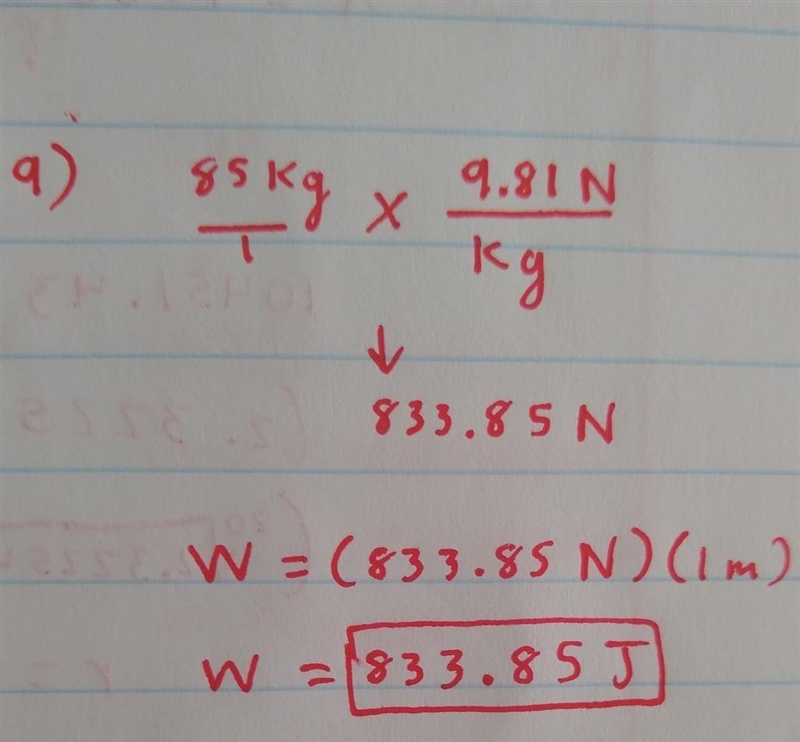 a) 85 Kg / 1 x 9.81 N / Kg
↓
833.85 N
W = (833.85 N)(1 m)
W = 833.85 J